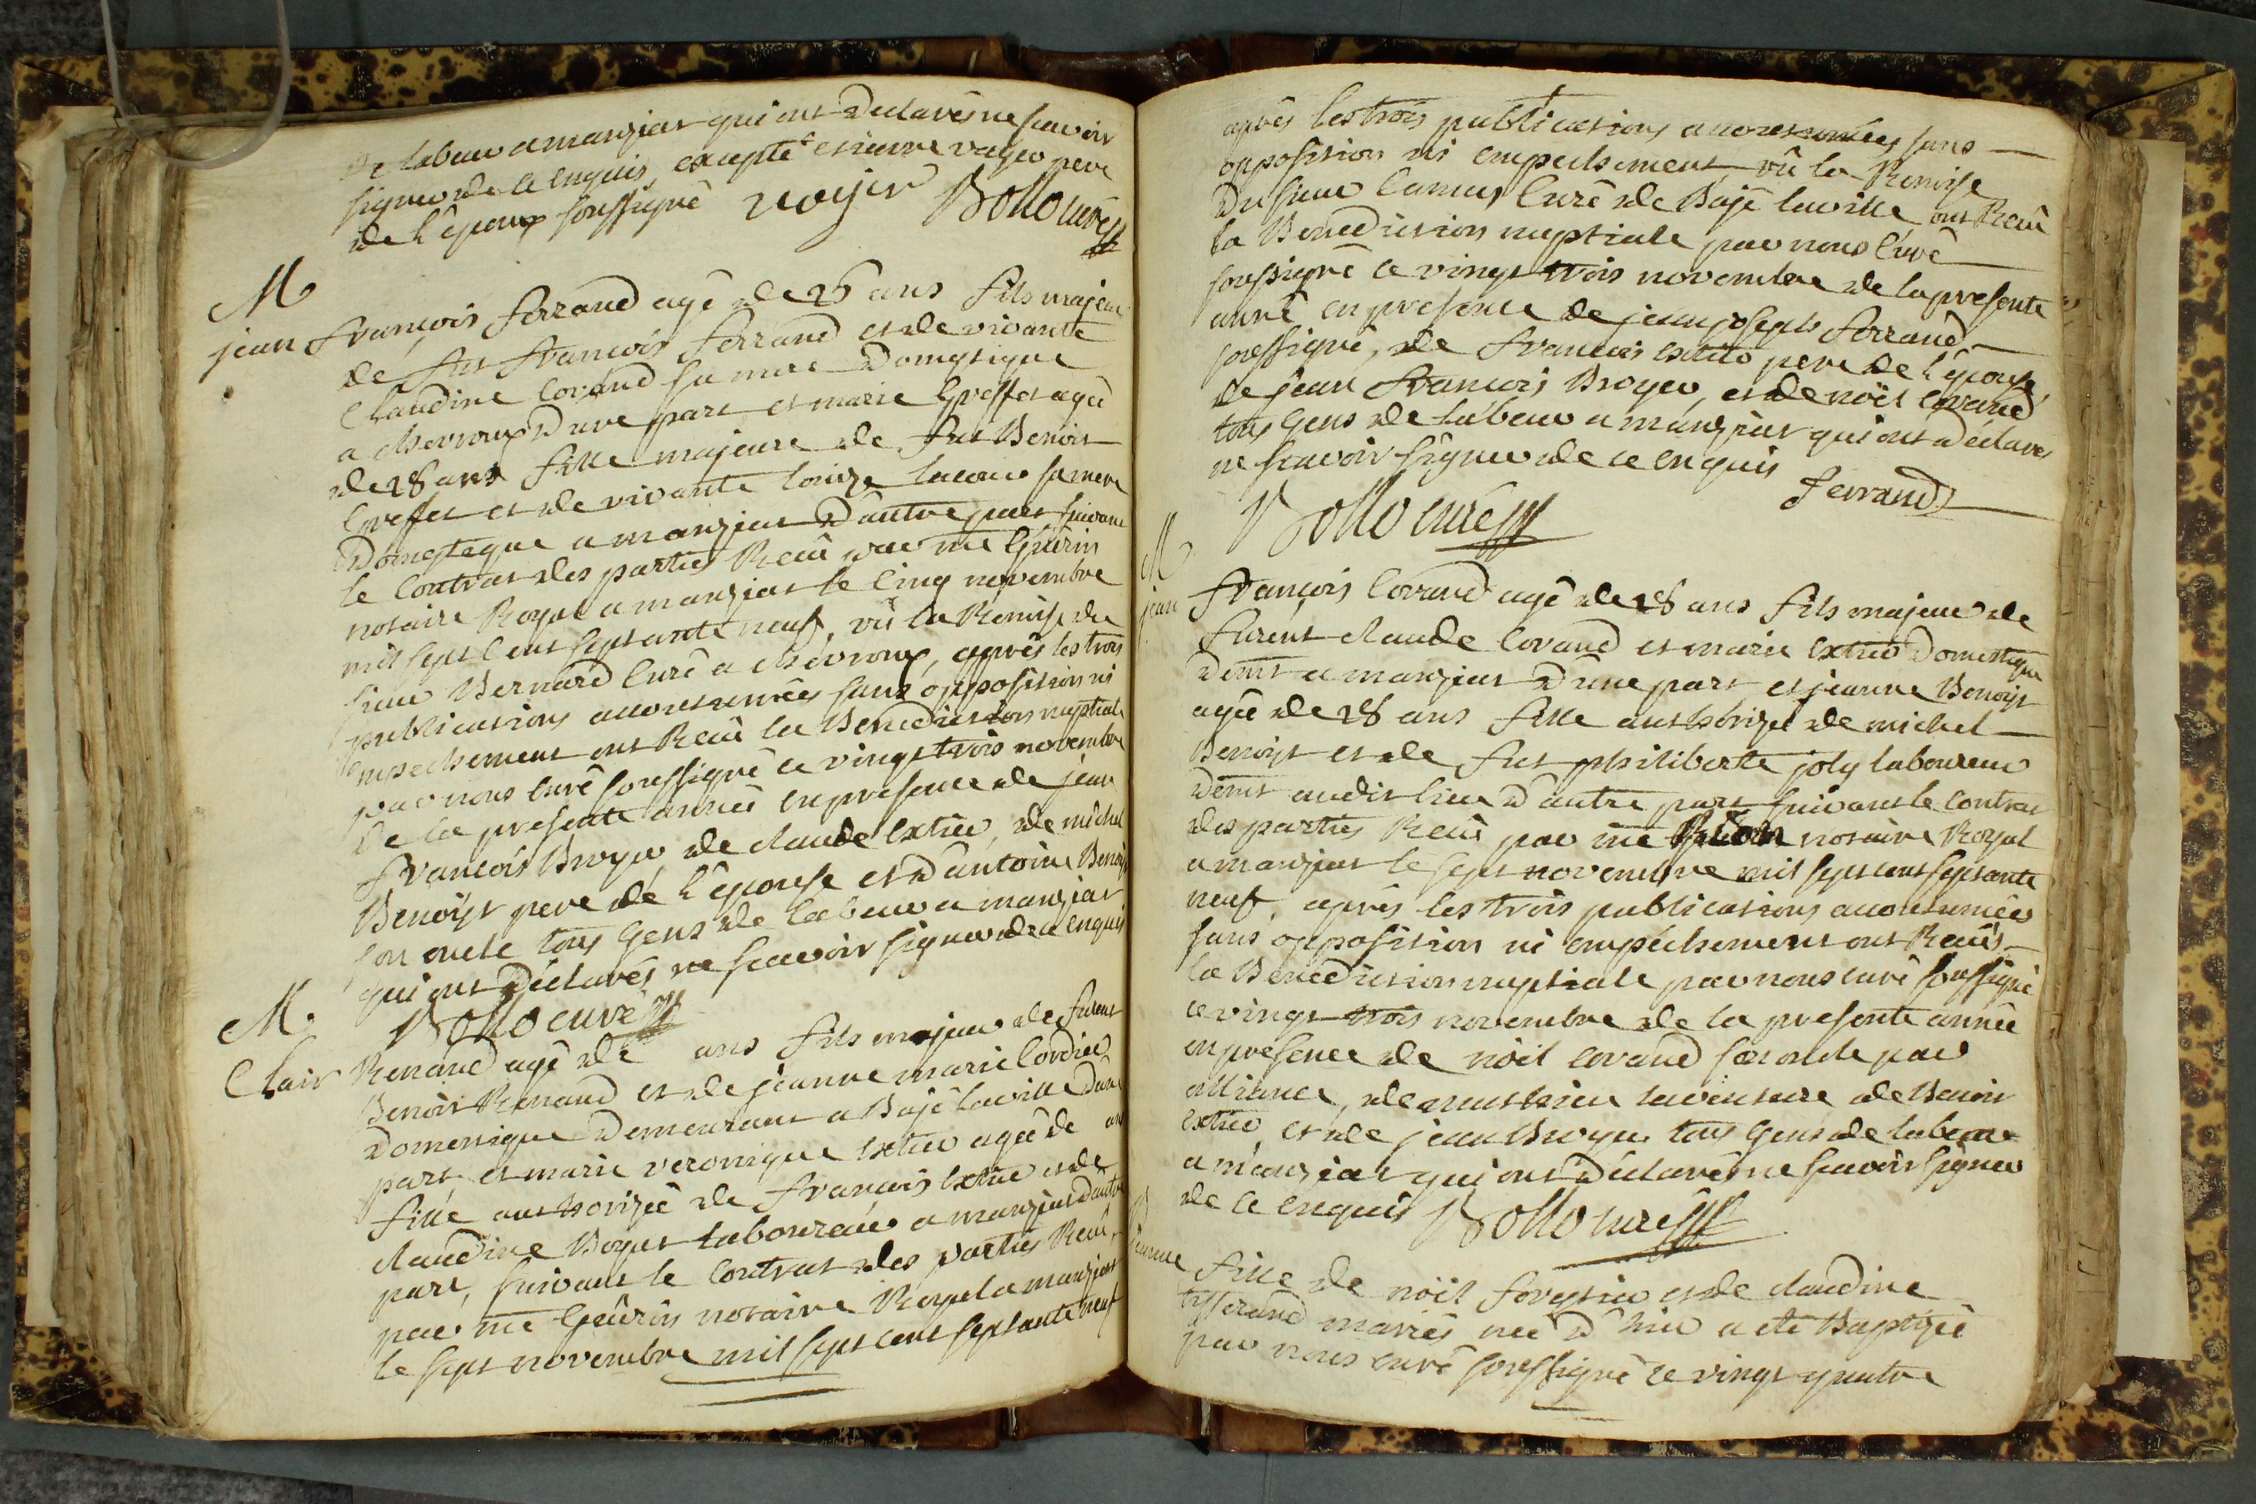 de labeur a manziat qui ont declarés ne scavoir
signer de ce enquis, excepté etienne voyer pere
de l'époux soussigné voyer Bollo curé
M
jean François ferrand agé de 28 ans fils majeur
de fut François ferrand et de vivante
Claudine Corand sa mere Domestique
a chevroux d'une part et marie Greffet agée
de 28 ans fille majeure de fut Benoit
Greffet et de vivante Louize sa mere
Domesteque a manziat d'autre part suivant
le Contrat des parties Reçû par me Guérin
notaire Royal a manziat le Cinq novembre
mil sept Cent septante neuf, vû la Remise du
sieur Bernard Curé a chevroux, après les trois
publications accoutumées sans opposition ni
empechement ont Reçû la Benediction nuptiale
par nous Curé soussigné ce vingt trois novembre
de la presente année en presence de jean
François Broyer, de claude Extier, de michel
Benoist pere de l'épouse et d'antoine Benoist
son oncle tous Gens de labeur a manziat
qui ont déclarés ne scavoir signer de ce enquis
Bollo curé
M.
Clair Renaud agé de ans fils majeur de furent
Benoit Renaud et de jeanne marie Cordier
Domestique Demeurant a Bajé laville d'une
part et marie veronique Extier agée de ans
fille authorizée de François Extier et de
claudine Boyat laboureur a manziat d'autre
part, suivant le Contrat des parties Reçû
par me Guérin notaire Royal a manziat
le sept novembre mil sept cent septante neuf
après les trois publications accoutumées sans
opposition ni empechement, vû la Remise
du sieur Camus Curé de Bajé laville ont Reçû
la Benediction nuptiale par nous Curé
soussigné ce vingt trois novembre de la presente
année en presence de jean joseph ferrand
soussigné, de François Extier pere de l'épouse
de jean François Broyer, et de noël Corand
tous Gens de labeur a manziat qui ont déclarés
ne scavoir signer de ce enquis
ferrand
Bollo curé
M
jean François Corand agé de 28 ans fils majeur de
furent claude Corand et marie Extier Domestique
demt a manziat d'une part et jeanne Benoist
agée de 28 ans fille authorizée de michel
Benoist et de fut philiberte joly laboureur
demt audit lieu d'autre part suivant le Contrat
des parties Reçû par me notaire Royal
a manziat le sept novembre mil sept cent septante
neuf, après les trois publications accoutumées
sans opposition ni empechement ont Reçûs
la Benediction nuptiale par nous curé soussigné
ce vingt trois novembre de la presente année
en presence de noël Corand son oncle par
alliance, de de Benoit
Extier, et de jean Broyer tous Gens de labeur
a manziat qui ont déclarés ne scavoir signer
de ce enquis Bollo curé
B
jeanne fille de noël forestier et de claudine
tisserand mariés née d'hier a été Baptizée
par nous curé soussigné ce vingt quatre